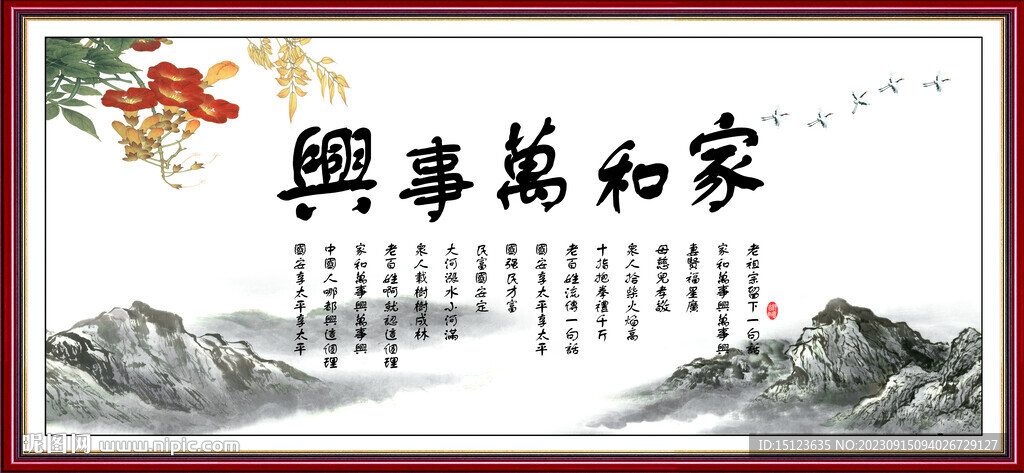 家和萬事興
老祖宗留下一句話
家和萬事興萬事興
妻賢福星廣
母慈兒孝敬
眾人拾柴火焰高
十指抱拳禮千斤
老百姓流傳一句話
國安享太平享太平
國强民才富
民富國安定
大河漲水小河滿
眾人栽樹樹成林
老百姓啊就認這個理
家和萬事興萬事興
中國人哪都興這個理
國安享太平享太平
昵图网 www.nipic.com
ID:15123635 NO:20230915094026729127